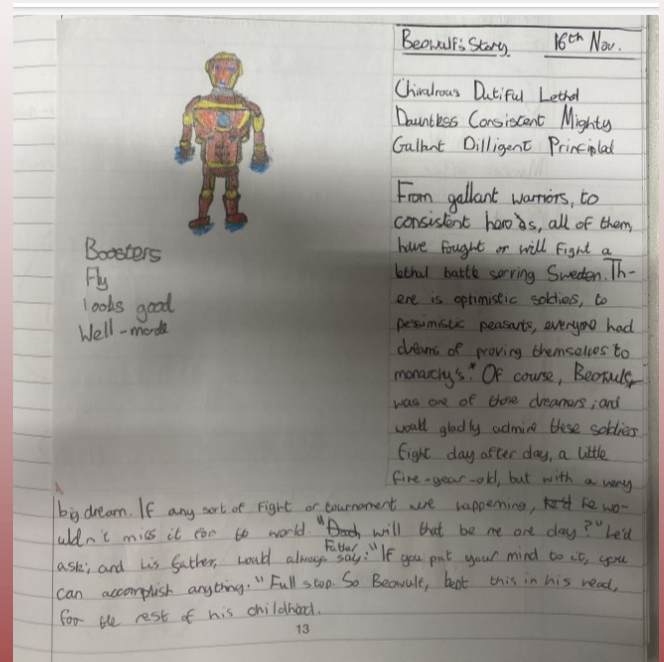 Beowulf's Story 16th Nov.
Chivalrous Dutiful Lethal
Dauntless Consistent Mighty
Gallant Dilligent Principlal
From gallant warriors, to
consistent hero's, all of them,
have fought or will fight a
lethal battle serving Sweden. Th-
ere is optimistic soldies, to
pessimistic peasants, everyone had
dreams of proving themselves to
monarchy's.* Of course, Beowulf,
was one of those dreamers; and
would gladly admire these soldies
fight day after day, a little
five-year-old, but with a very
big dream. If any sort of fight or tournament were happening, he wo-
uldn't miss it for to world. " Father, will that be me one day?" he'd
ask; and his father, would always say: "If you put your mind to it, you
can accomplish anything." Full stop. So Beowulf, kept this in his head,
for the rest of his childhood.
Boosters
Fly
looks good
Well-made
13